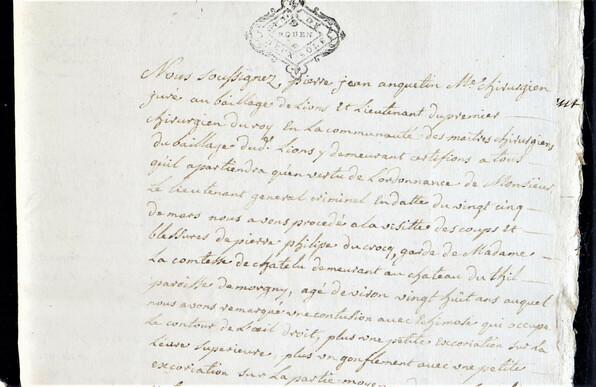 ROUEN
Nous soussignez, pierre jean anquetin Me. chirurgien
juré au baillage de Lions Et Lieutenant du premier
chirurgien du roy En La communauté des maîtres chirurgiens
du baillage dud. Lions y demeurant certifions a tous
quil apartiendra quen vertu de Lordonnance de Monsieur
Le lieutenant general criminel En datte du vingt cinq
de mars nous avons procédé a la visitte des coups et
blessures de pierre philipe ducrocq, garde de Madame
La comtesse de chatelu demeurant au chateau du thil
paroisse de morgny, agé de viron vingt huit ans auquel
nous avons remarqué une contusion avec Echimose qui occupe
Le contour de L'oeil droit, plus une petite excoriation sur la
Levre superieure, plus un gonflement avec une petite
excoriation sur la partie moyen